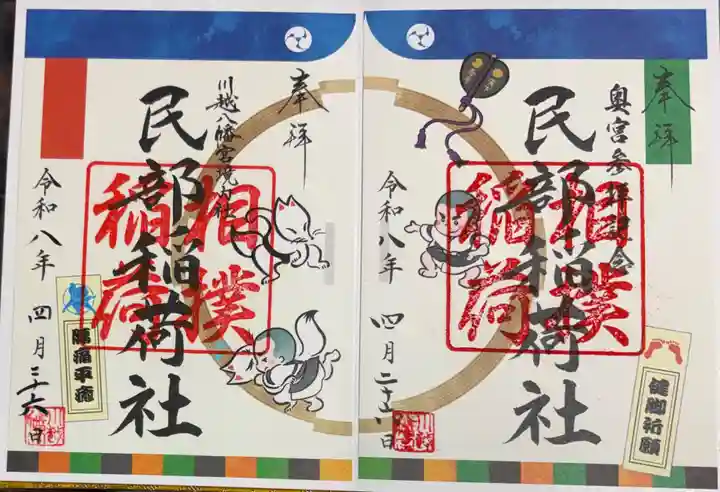 奉拝
奥宮参拝記念
民部稲荷社
相撲
稲荷
令和八年
四月二十六日
健脚祈願
奉拝
川越八幡宮境内社
民部稲荷社
相撲
稲荷
令和八年
四月二十六日
腰痛平癒